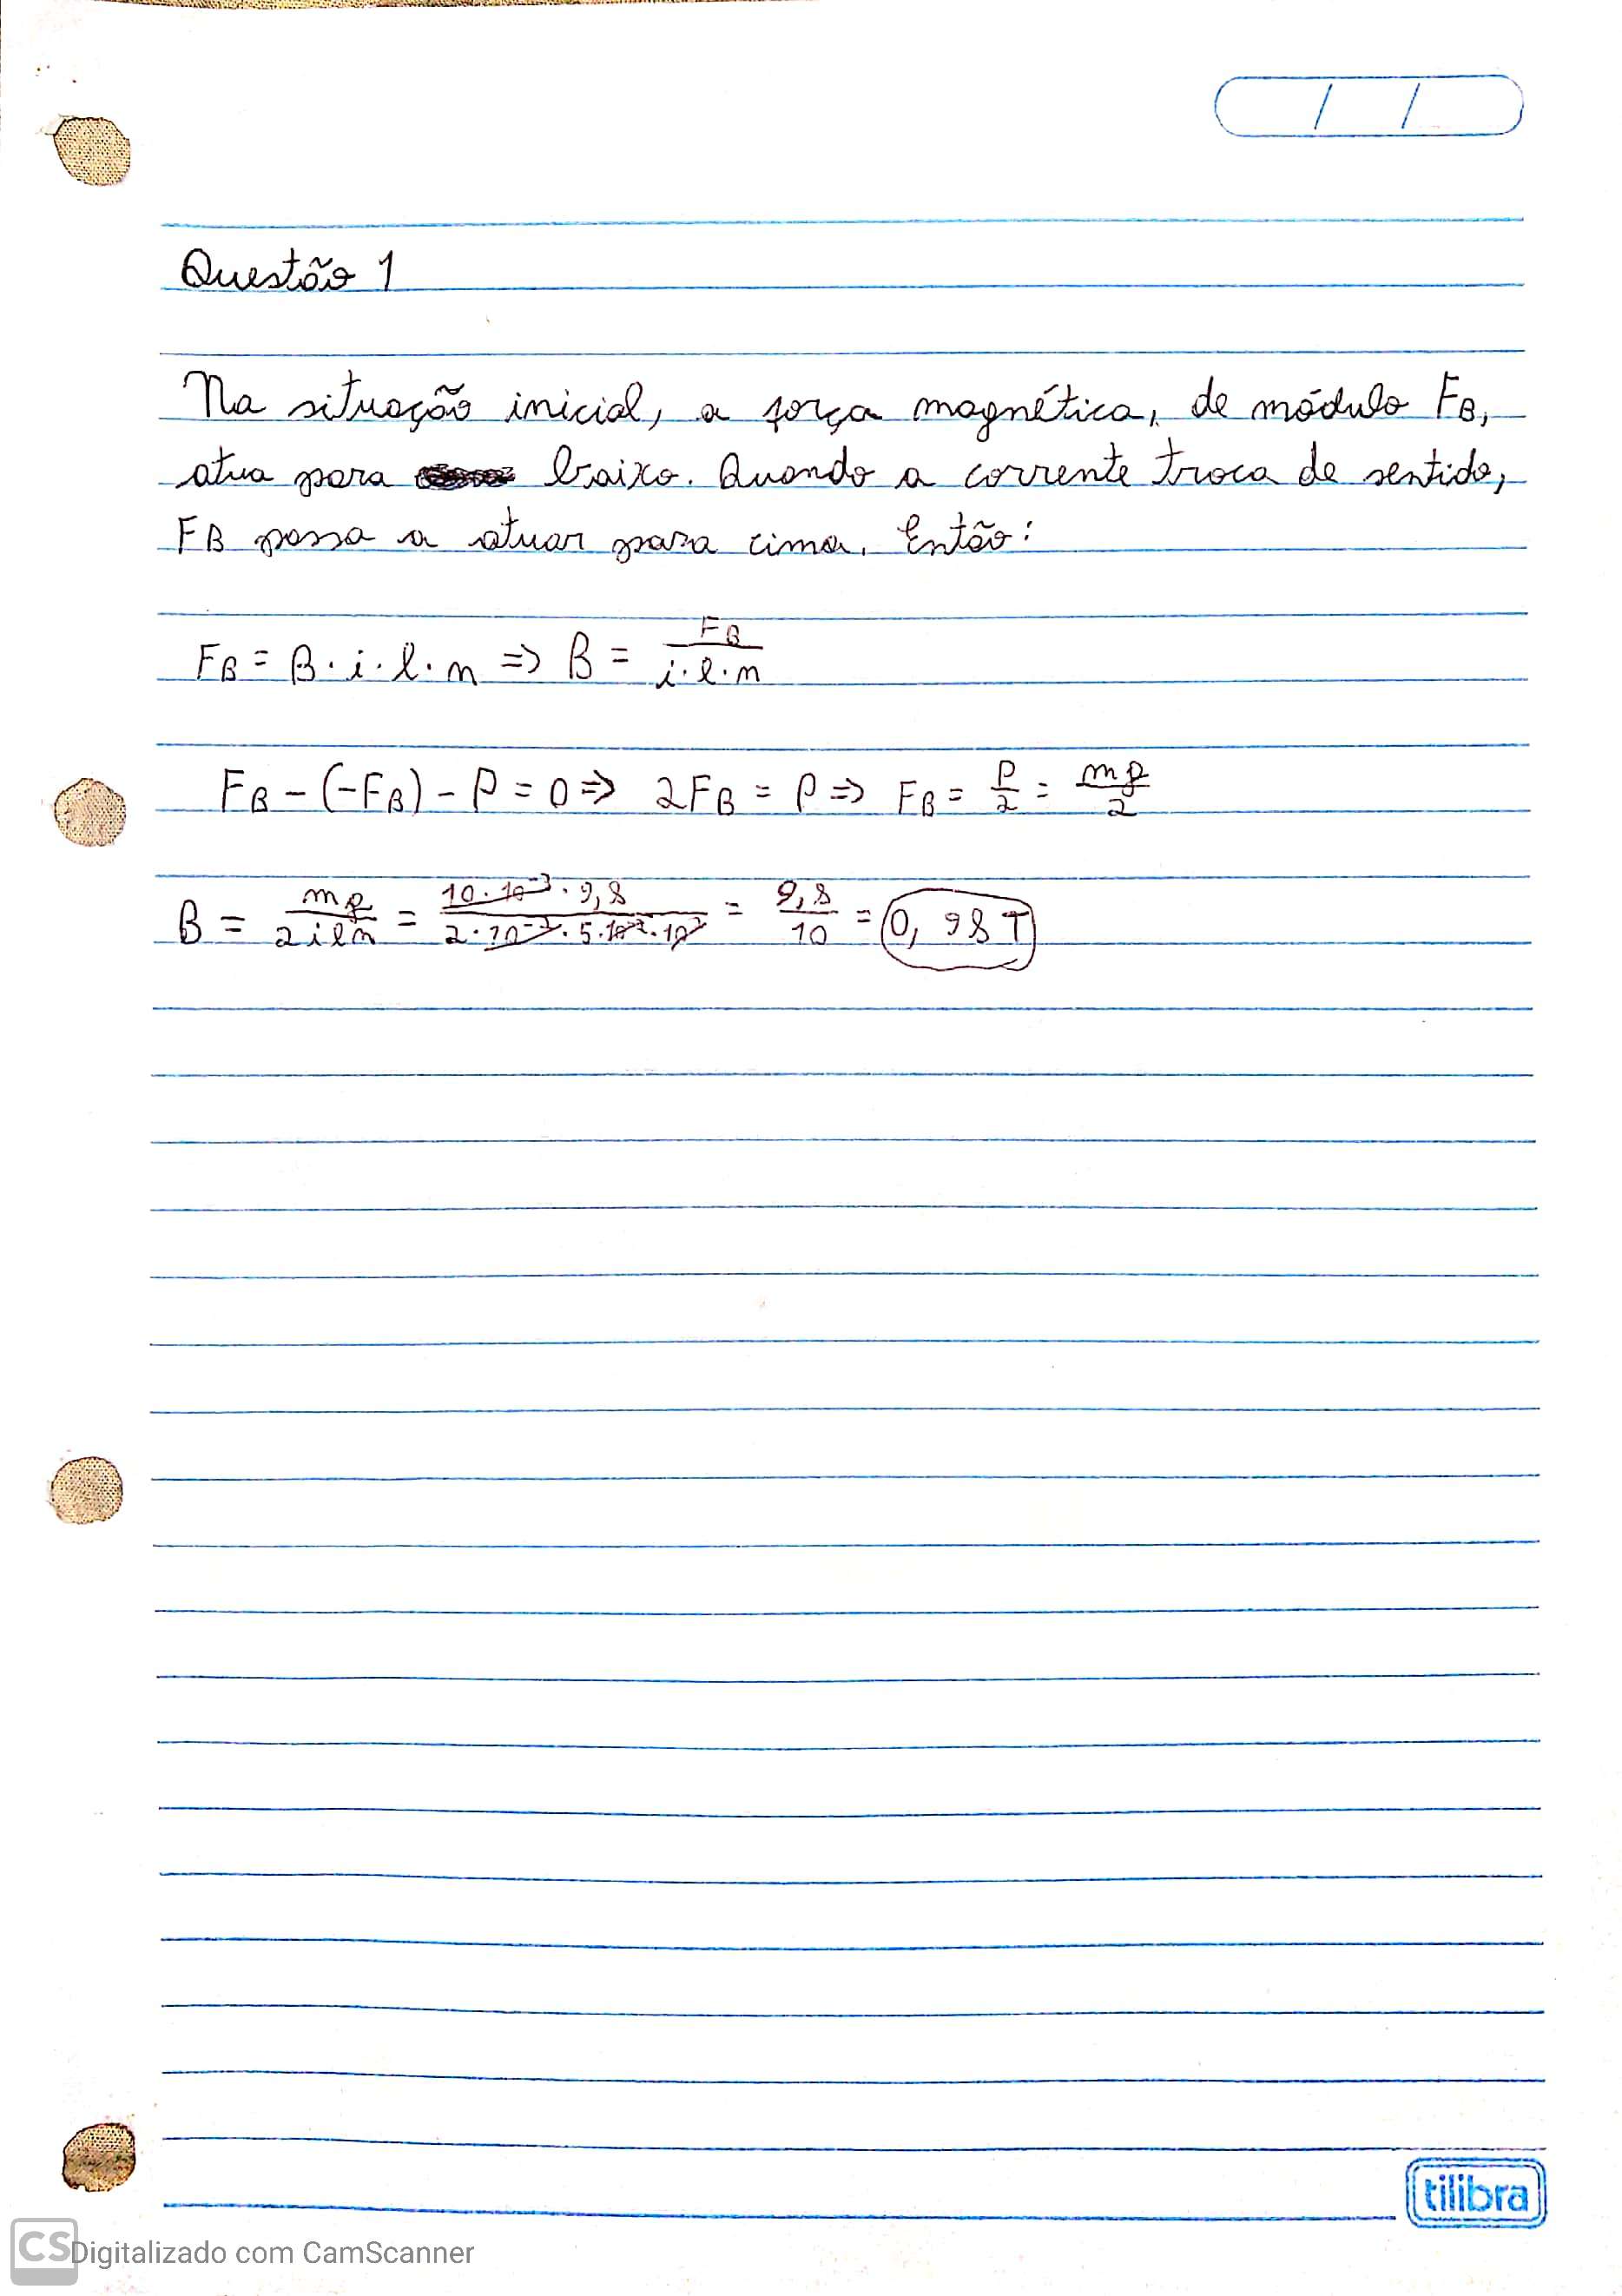 / /
Questão 1
Na situação inicial, a força magnética, de módulo FB,
atua para baixo. Quando a corrente troca de sentido,
FB passa a atuar para cima. Então:
FB = B · i · l · n => B = FB / i·l·n
FB - (-FB) - P = 0 => 2FB = P => FB = P/2 = mg/2
B = mg / 2iln = 10·10⁻³·9,8 / 2·10⁻²·5·10⁻²·10³ = 9,8/10 = 0,98T
tilibra
CS Digitalizado com CamScanner